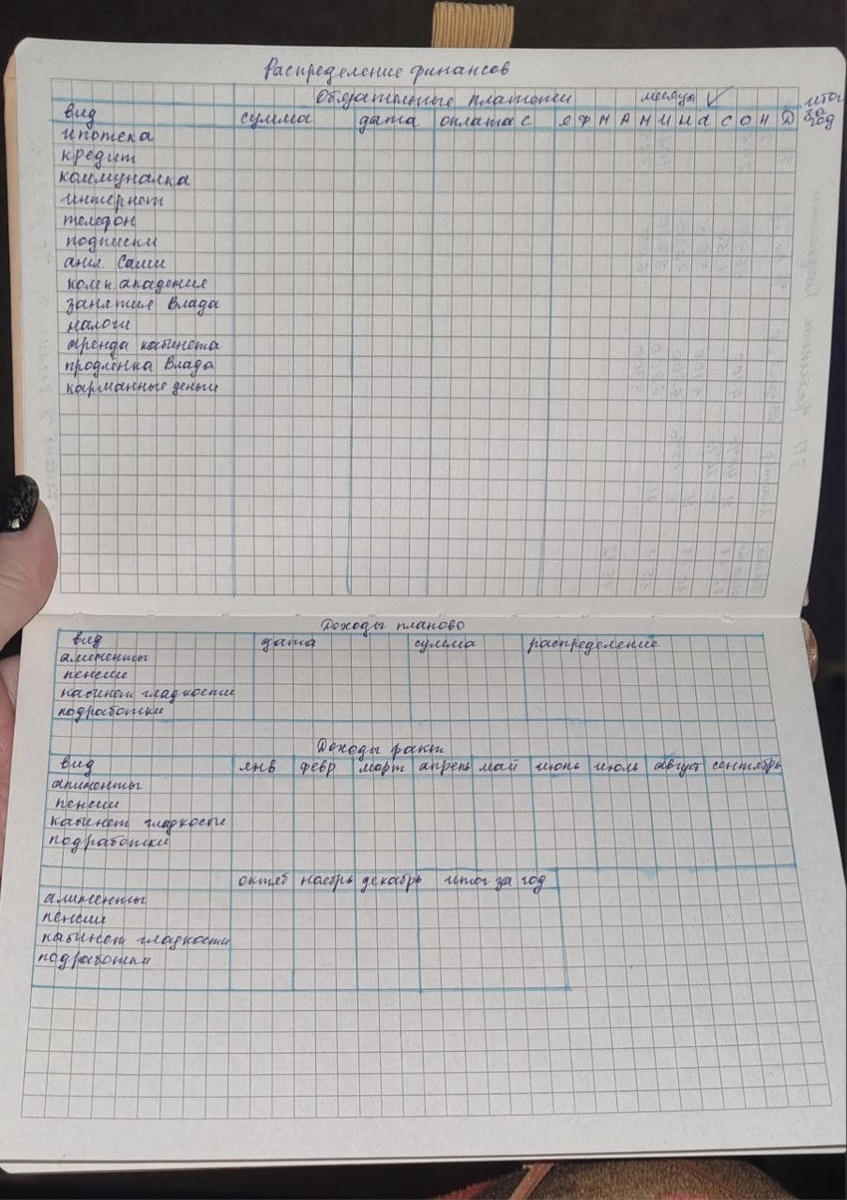 Распределение финансов
Обязательные платежи месяцы ✓ итог за год
вид сумма дата оплата с Я Ф М А М И И А С О Н Д
ипотека
кредит
коммуналка
интернет
телефон
подписки
англ. Саши
комп. академия
занятия Влада
налоги
аренда кабинета
продлёнка Влада
карманные деньги
Доходы планово
вид дата сумма распределение
алименты
пенсии
кабинет гладкости
подработки
Доходы факт
вид янв февр март апрель май июнь июль август сентябрь
алименты
пенсии
кабинет гладкости
подработки
октяб ноябрь декабрь итог за год
алименты
пенсии
кабинет гладкости
подработки